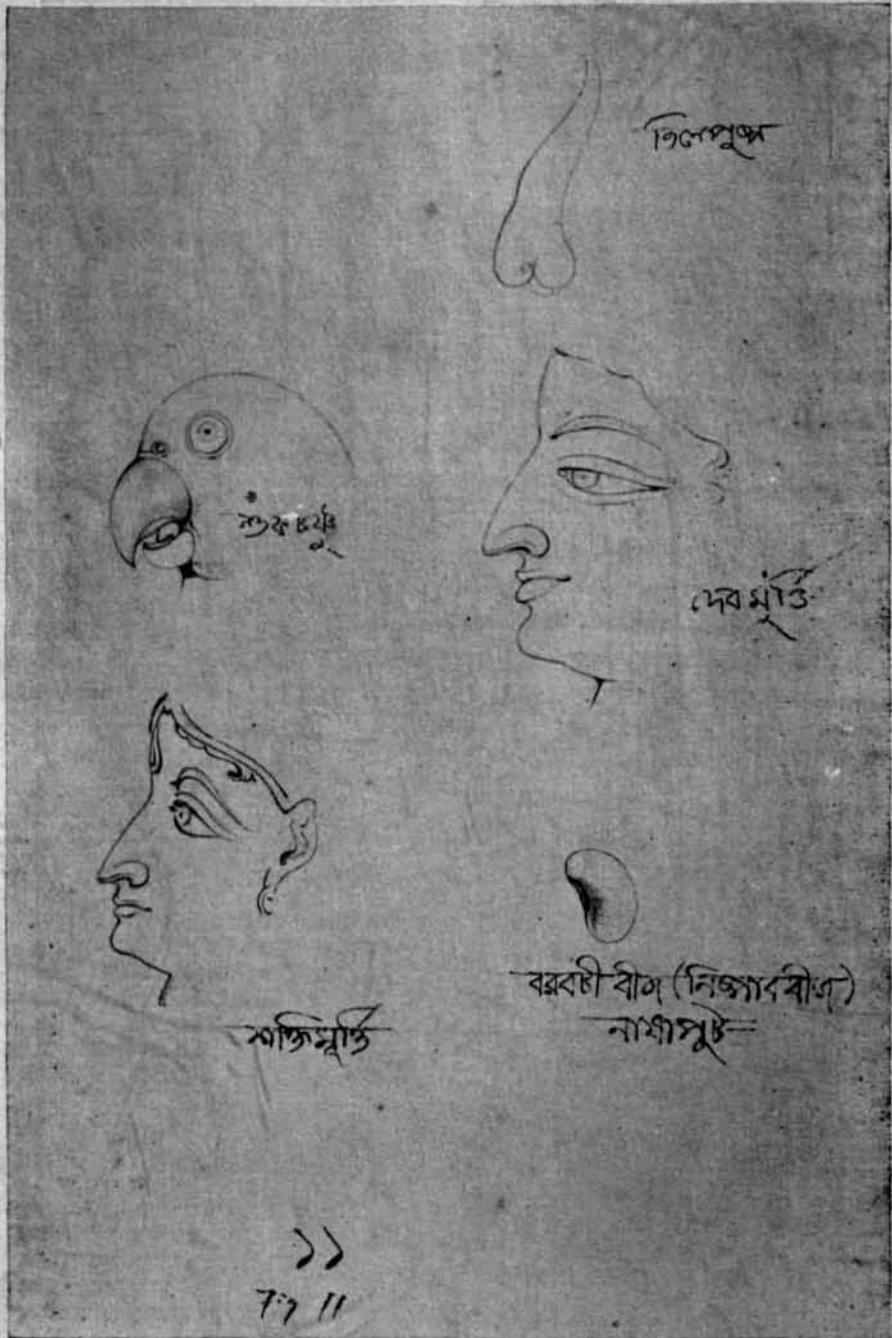 তিলপুষ্প
শুকচঞ্চু
দেবমূর্ত্তি
শক্তিমূর্ত্তি
বরবটী বীজ (নিষ্পাব বীজ)
নাষাপুট
১১
11